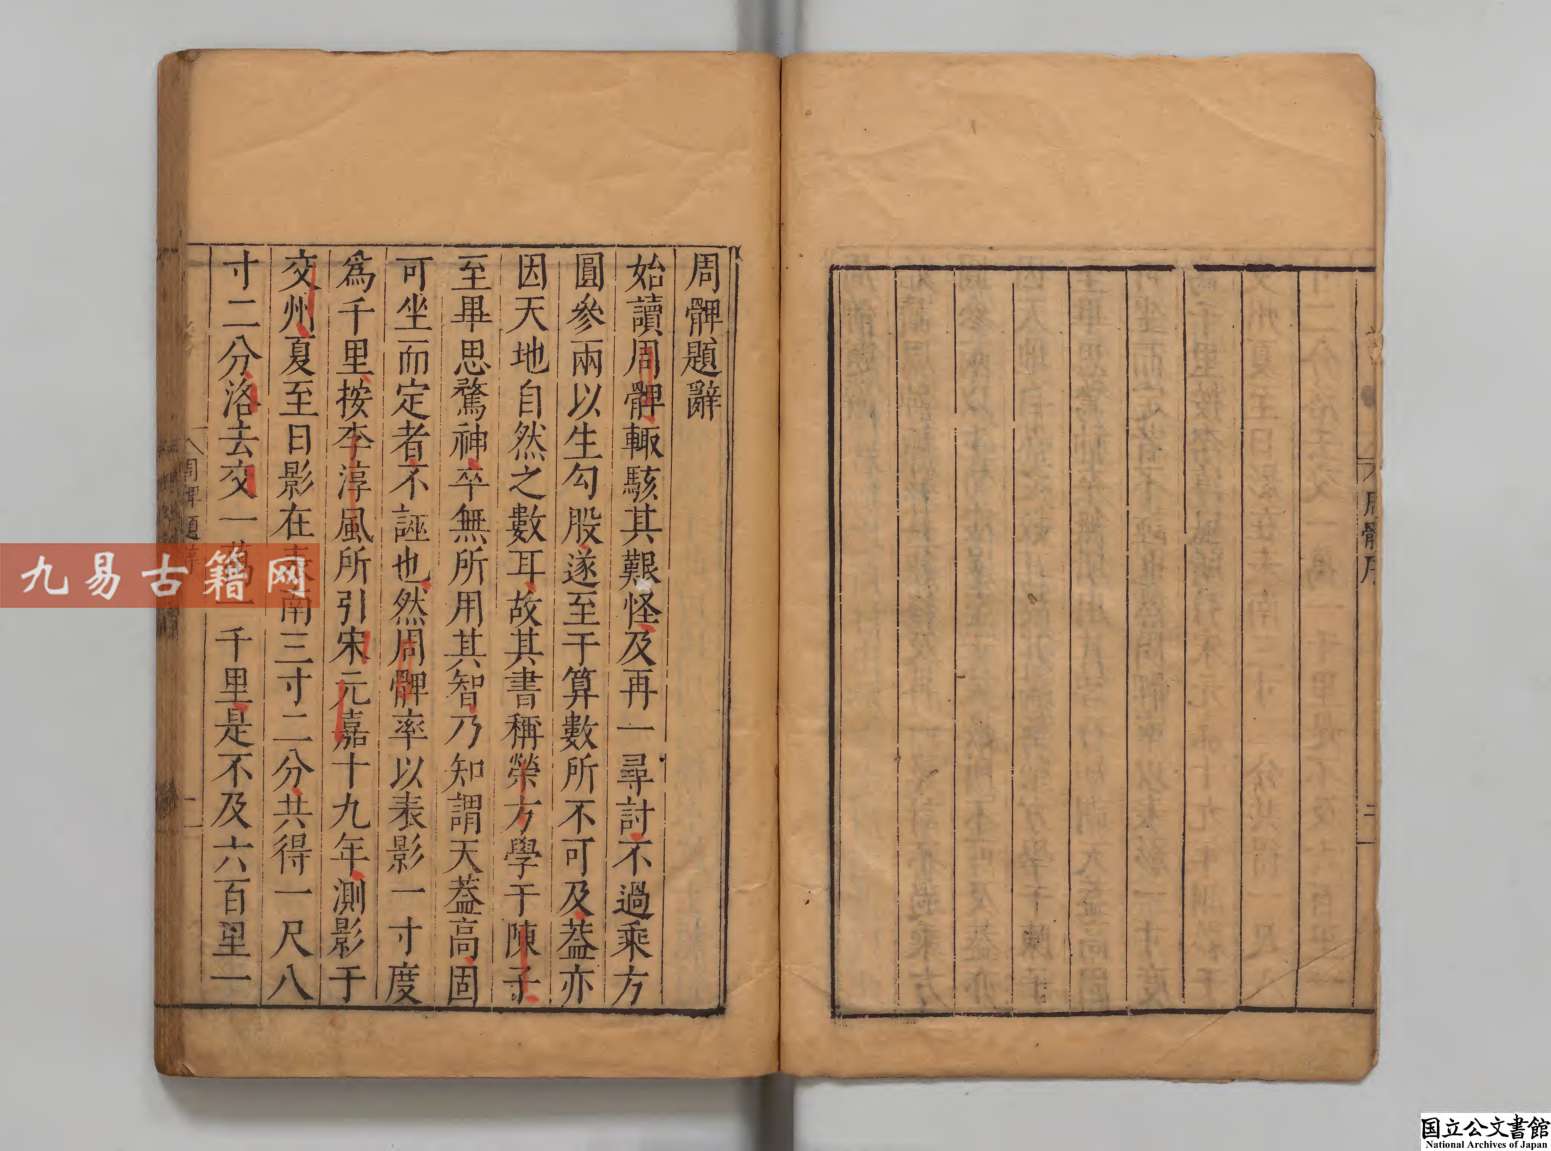 周髀題辭
始讀周髀輙駭其艱怪及再一尋討不過乘方
圓參兩以生勾股遂至于算數所不可及葢亦
因天地自然之數耳故其書稱榮方學于陳子
至畢思騖神卒無所用其智乃知謂天葢高固
可坐而定者不誣也然周髀率以表影一寸度
爲千里按李淳風所引宋元嘉十九年測影于
交州夏至日影在表南三寸二分共得一尺八
寸二分洛去交一萬一千里是不及六百里一
周髀題辭
一
周髀序
二
九易古籍网
国立公文書館
National Archives of Japan